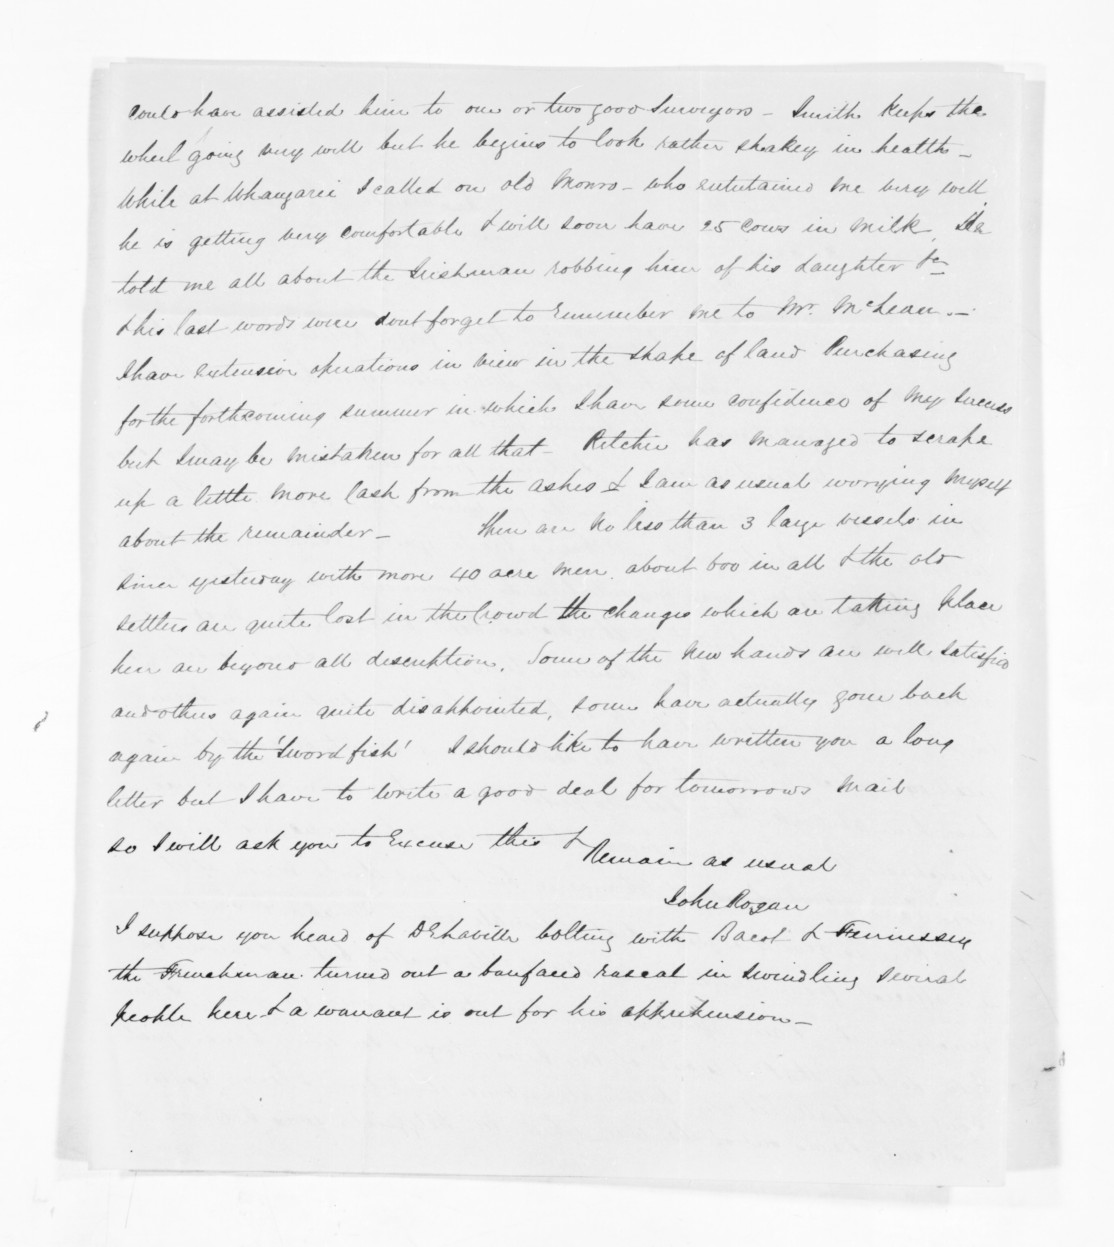 could have assisted him to one or two good Surveyors - Smith keeps the
wheel going very well but he begins to look rather shakey in health -
While at Whangarei I called on old Monro - who entertained me very well
he is getting very comfortable & will soon have 25 cows in milk. He
told me all about the Irishman robbing him of his daughter &c
& his last words were dont forget to remember me to Mr. McLean. -
I have extensive operations in view in the shape of land Purchasing
for the forthcoming summer in which I have some confidence of my success
but I may be mistaken for all that - Ritchie has managed to scrape
up a little more Cash from the ashes & I am as usual worrying myself
about the remainder - There are no less than 3 large vessels in
since yesterday with more 40 acre men. about 600 in all & the old
settlers are quite lost in the Crowd the changes which are taking place
here are beyond all description. Some of the new hands are well satisfied
and others again quite disappointed, some have actually gone back
again by the 'Sword fish' I should like to have written you a long
letter but I have to write a good deal for tomorrows mail
so I will ask you to Excuse this &
Remain as usual
John Rogan
I suppose you heard of bolting with Bacot &
the Frenchman turned out a barefaced rascal in swindling several
people here & a warrant is out for his apprehension -